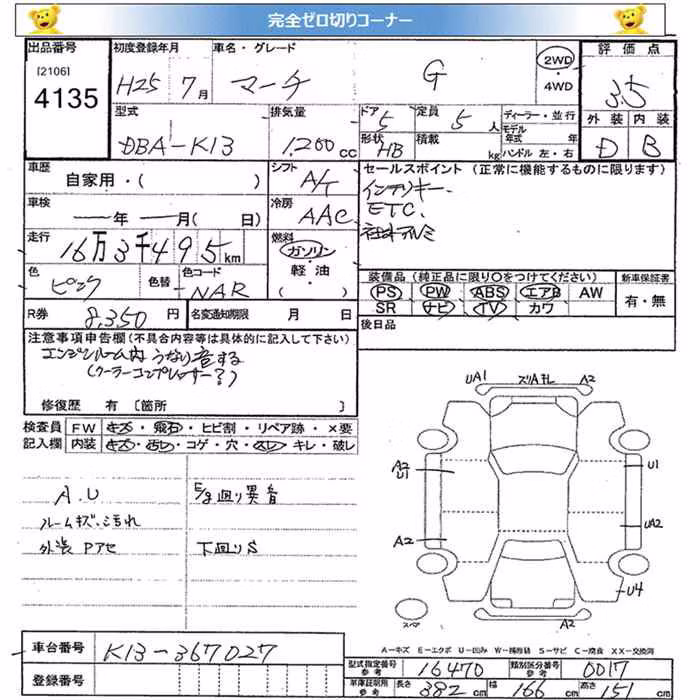 完全ゼロ切りコーナー
出品番号 初度登録年月 車名・グレード 評価点
[2106] H25 7月 マーチ G 2WD・4WD 3.5
4135
型式 排気量 ドア 定員 ディーラー・並行 外装 内装
DBA-K13 1,200cc 5 5人 モデル年式 年
形状 HB 積載 kg ハンドル 左・右 D B
車歴 シフト セールスポイント (正常に機能するものに限ります)
自家用・( ) A/T インテリキー.
車検 冷房 ETC.
ー年ー月( 日) AAC 社外アルミ
走行 燃料
16万3千495km ガソリン・軽油・( )
色 色替 色コード 装備品 (純正品に限り〇をつけてください) 新車保証書
ピンク NAR PS PW ABS エアB AW 有・無
SR ナビ TV カワ
R券 8,350円 名変通知期限 月 日 後日品
注意事項申告欄(不具合内容等は具体的に記入して下さい)
エンジンルーム内 うなり音する
(クーラーコンプレッサー?)
修復歴 有 〔箇所 〕
検査員 FW キズ・飛石・ヒビ割・リペア跡・×要
記入欄 内装 キズ・汚レ・コゲ・穴・スレ・キレ・破レ
UA1 ズリA・ホレ A2
A2 U1 U1
A.U E/g廻り異音
ルームキズ・汚れ UA2
外装Pアセ 下廻りS A2
U4
スペア A2
A-キズ E-エクボ U-凹み W-補修跡 S-サビ C-腐食 XX-交換済
車台番号 K13-367027
型式指定番号参考 16470 類別区分番号参考 0017
登録番号 車庫証明用参考 長さ 382cm 幅 166cm 高さ 151cm